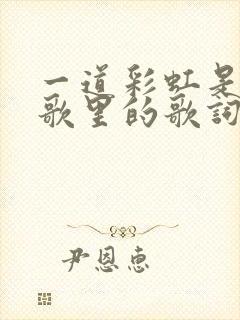 一道彩虹是
歌里的歌词
尹恩惠